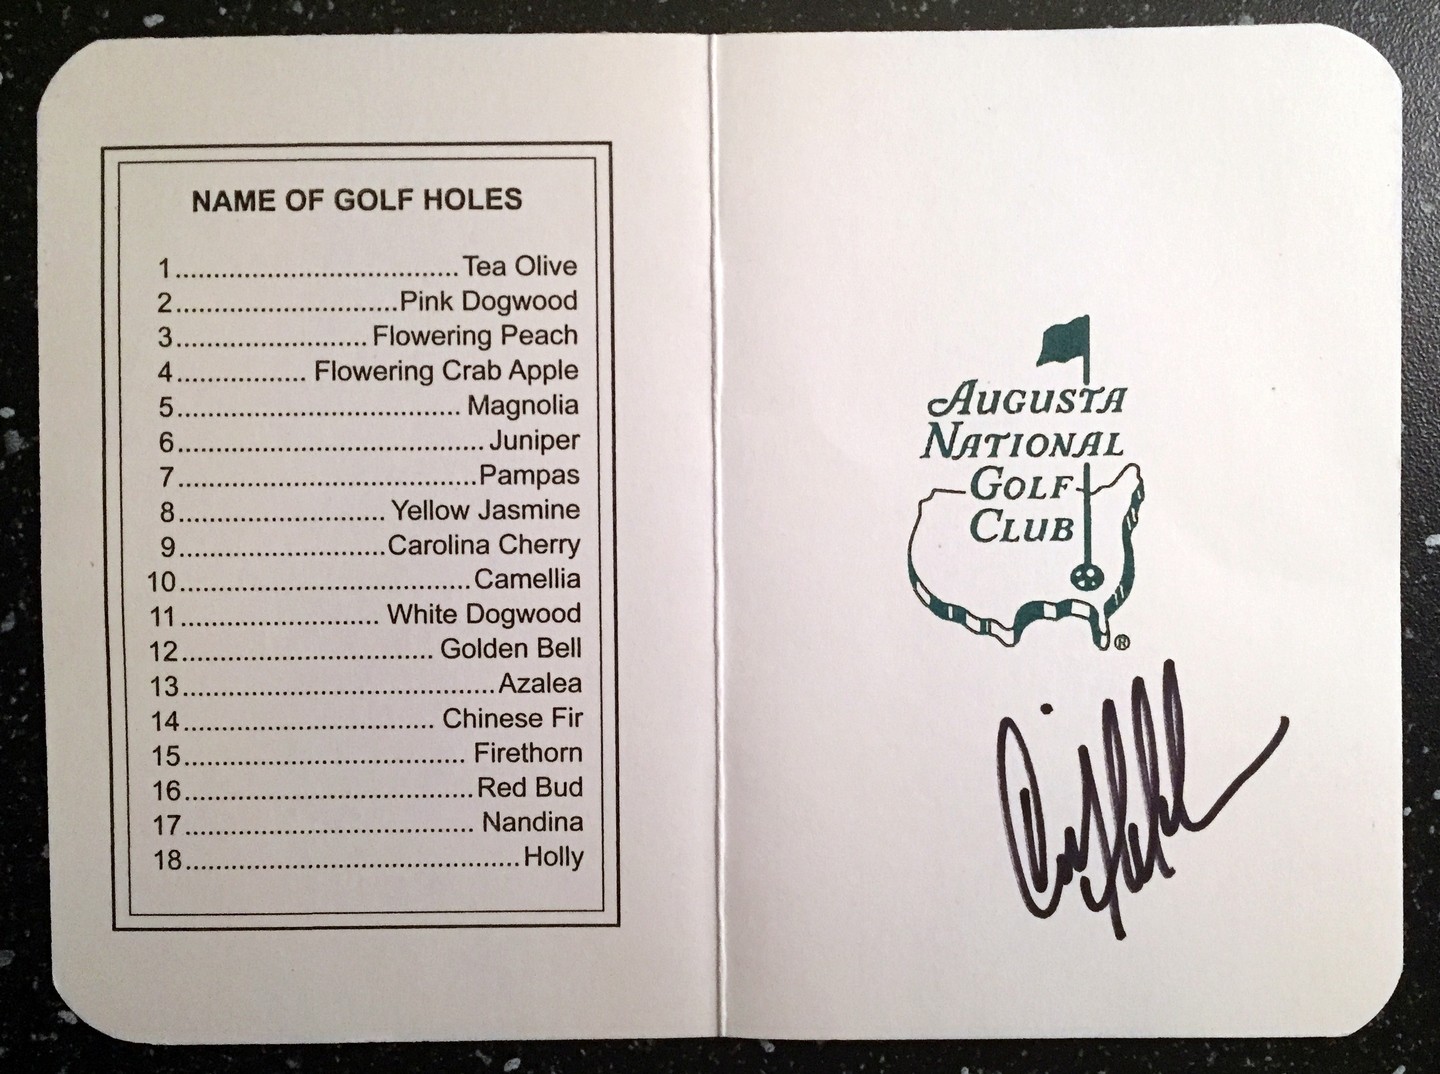 NAME OF GOLF HOLES
1....................................Tea Olive
2............................Pink Dogwood
3........................Flowering Peach
4................ Flowering Crab Apple
5.................................... Magnolia
6.......................................Juniper
7......................................Pampas
8.......................... Yellow Jasmine
9..........................Carolina Cherry
10.....................................Camellia
11......................... White Dogwood
12................................ Golden Bell
13........................................Azalea
14................................ Chinese Fir
15.................................... Firethorn
16.....................................Red Bud
17..................................... Nandina
18...........................................Holly
AUGUSTA
NATIONAL
GOLF
CLUB
®